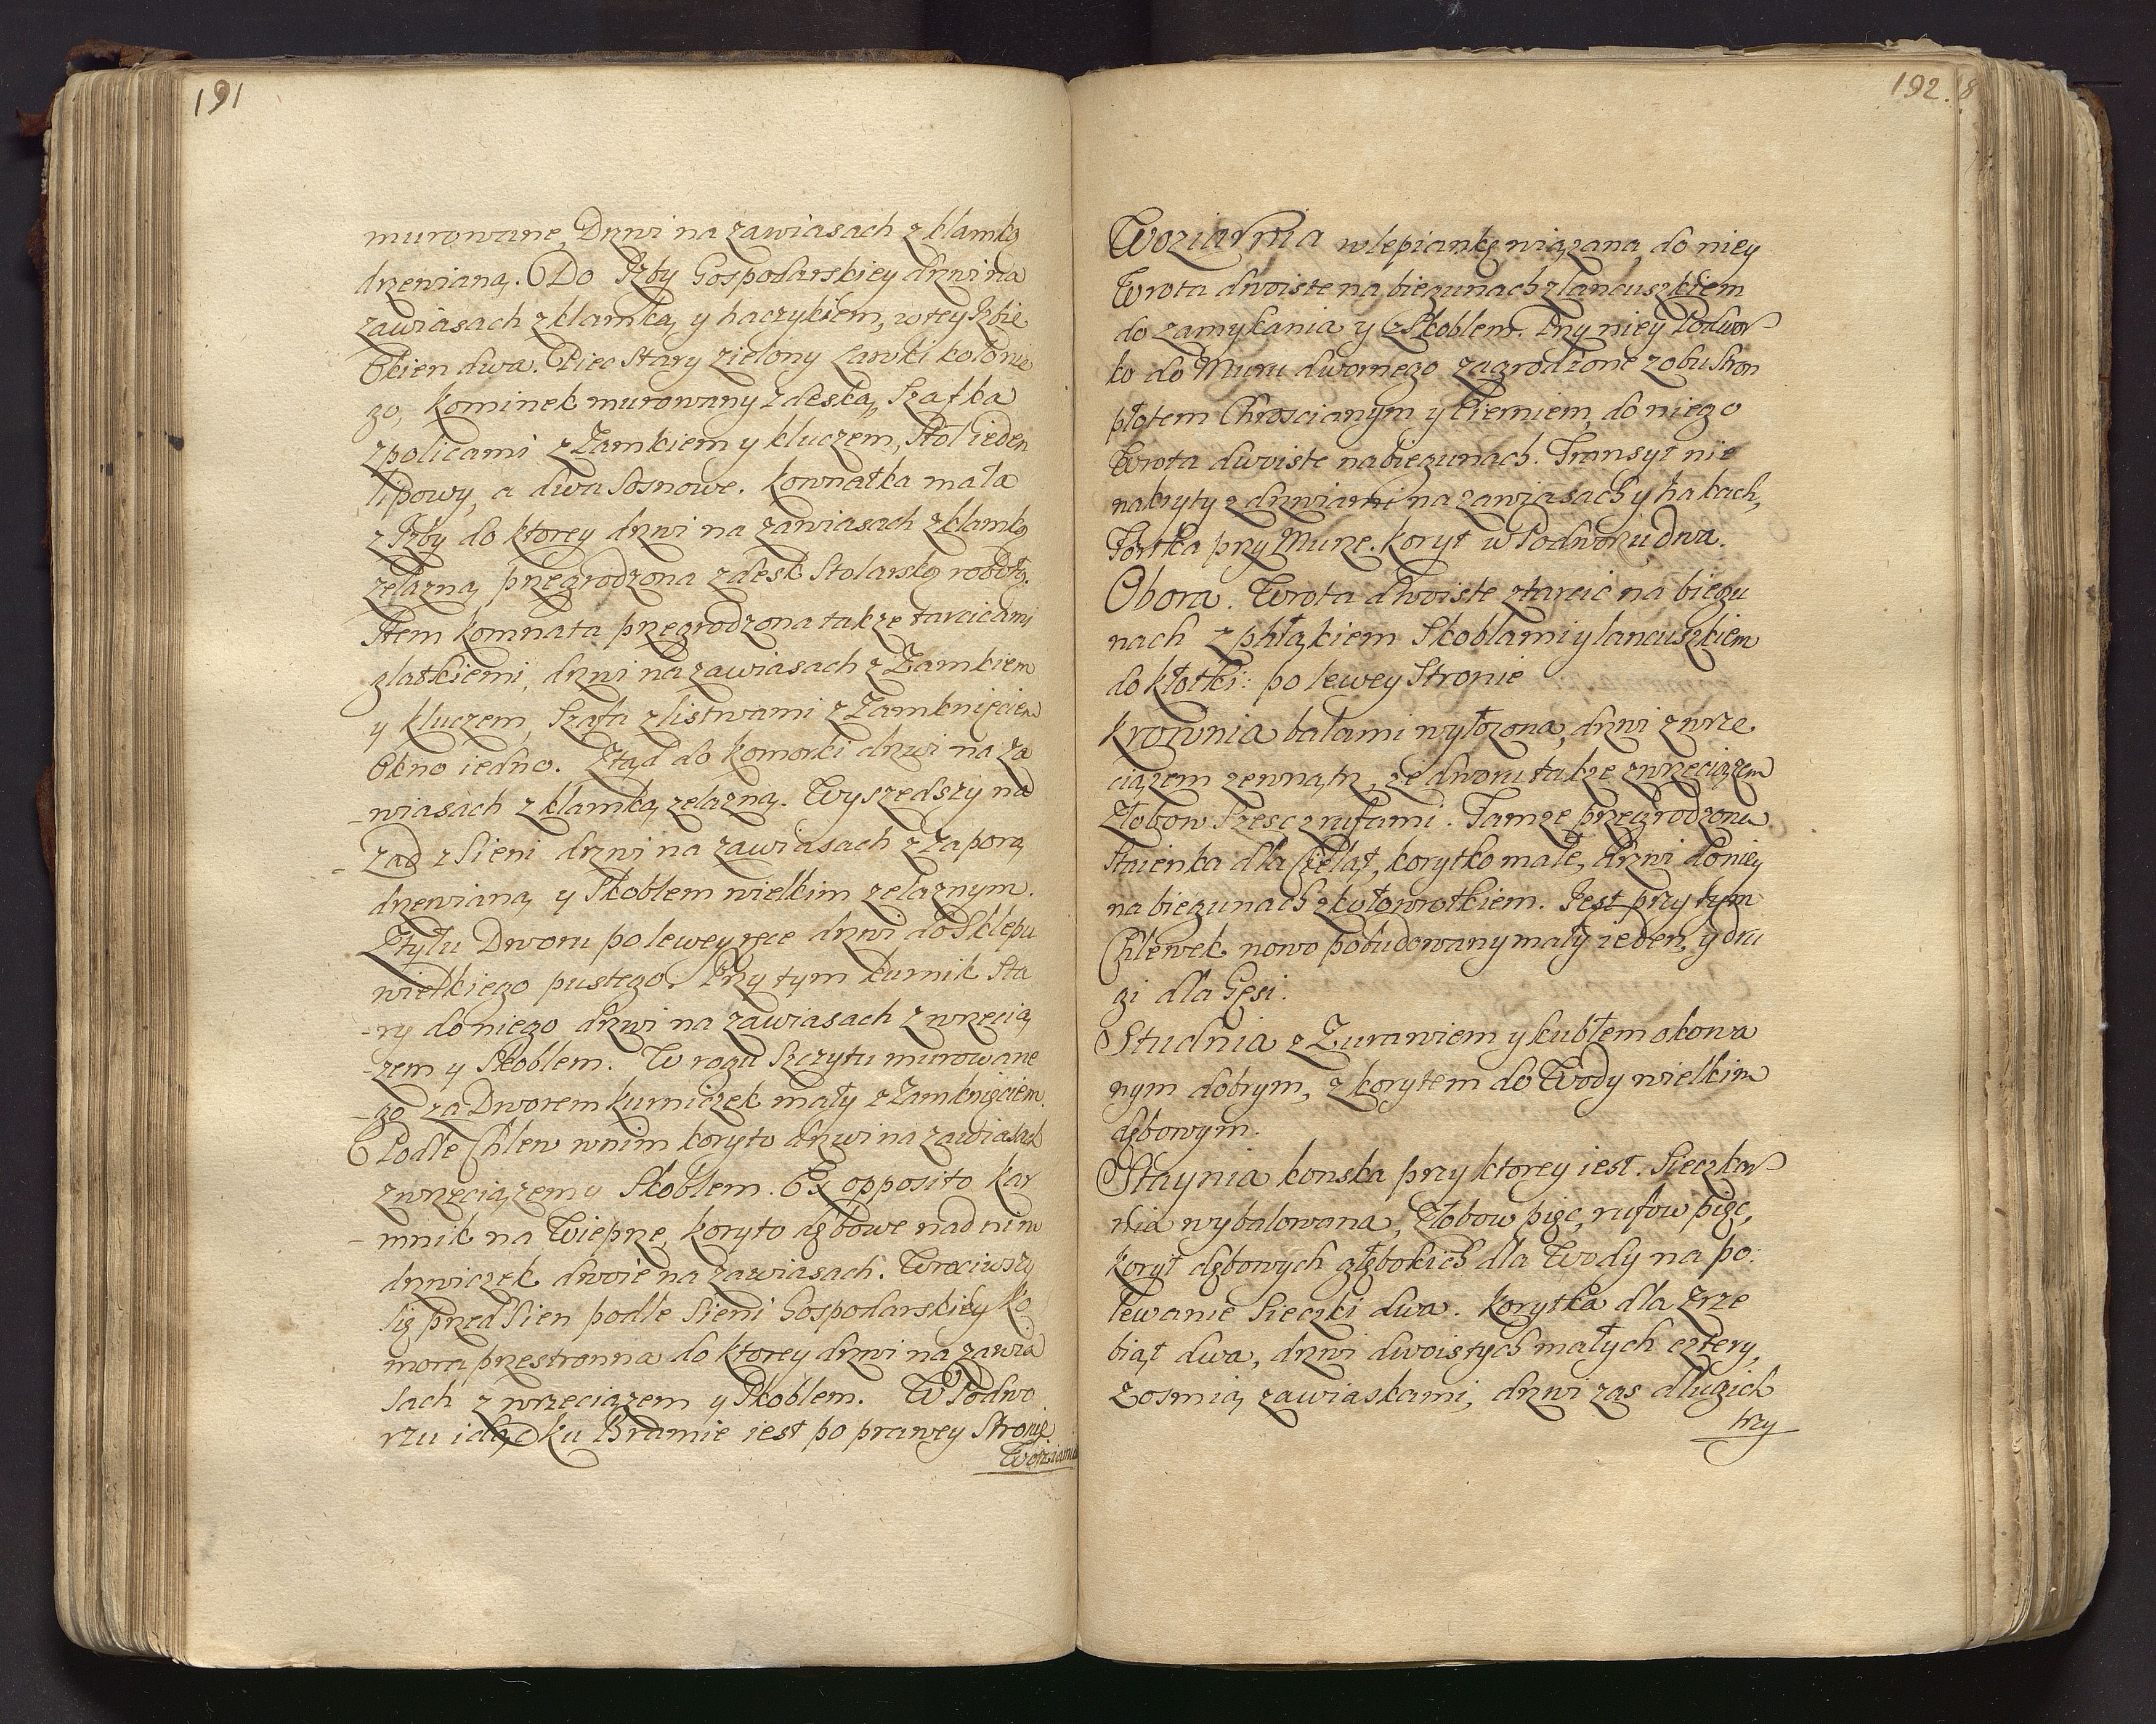 191
murowane, Drzwi na zawiasach z klamką
drzewianą. Do Izby Gospodarskiey drzwi na
zawiasach z klamką y haczykiem, w tey Izbie
Okien dwa. Piec Stary zielony Ławki koło nie
go, Kominek murowany z deską, Szafka
z policami z Zamkiem y kluczem, Stoł ieden
lipowy, a dwa Sosnowe. Kownatka mała
z Izby do ktorey drzwi na zawiasach z klamką
zelazną przegrodzona z desk Stolarską robotą.
Item Komnata przegrodzona takze tarcicami
gladkiemi, drzwi na zawiasach z Zamkiem
y kluczem, Szafa z listwami z Zamknięciem
Okno iedno. Ztąd do Komorki drzwi na za
wiasach z klamką zelazną. Wyszedszy na
zad z Sieni drzwi na zawiasach z Zaporą
drzewianą y Skoblem wielkim zelaznym.
Ztyłu Dworu po lewey ręce drzwi do Sklepu
wielkiego pustego. Przy tym kurnik Sta
-ry do niego drzwi na zawiasach z wrzecią
-zem y Skoblem. W rogu Szczytu murowane
-go za Dworem kurniczek mały z Zamknięciem.
Podle Chlew w nim koryto drzwi na zawiasach
z wrzeciązem y Skoblem. Ex opposito Kar
-mnik na Wieprze, koryto dębowe nad nim
drzwiczek dwoie na zawiasach. Wrociwszy
się przed Sien podle Sieni Gospodarskiey Ko
mora przestronna do ktorey drzwi na zawia
Sach z wrzeciązem y Skoblem. W Podwo
rzu idąc ku Bramie iest po prawey Stronie
Woziarnia
192. 8
Woziarnia w lepiankę wiązana, do niey
Wrota dwoiste na biegunach z lancuszkiem
do zamykania y z Skoblem. Przy niey Podwor
ko do Muru dwornego zagrodzone z obu stron
płotem Chroscianym y Cierniem, do niego
Wrota dwoiste na biegunach. Transyt nie
nakryty z drzwiami na zawiasach y hakach,
Fortka przy Murze. Koryt w Podworzu dwa.
Obora. Wrota dwoiste z tarcic na biegu
nach z phtąkiem Skoblami y lancuszkiem
do kłotki: po lewey Stronie
Krownia balami wyłozona, drzwi z wrze
ciązem zewnątrz, ze dworu takze z wrzeciązem
Złobow Szesc z rufami. Tamze przegrodzona
Staienka dla Cieląt, korytko małe, drzwi do niey
na biegunach z kołowrotkiem. Jest przy tym
Chlewek nowo pobudowany mały ieden, y dru
gi dla Gęsi.
Studnia z Zurawiem y kubłem okowa
nym dobrym, z korytem do Wody wielkim
dębowym.
Staynia konska przy ktorey iest. Sieczkar
nia wybalowana, Złobow pięc, rufow pięc,
koryt dębowych głębokich dla Wody na po:
lewanie Sieczki dwa. Korytka dla Zrze
biąt dwa, drzwi dwoistych małych cztery,
z osmią zawiaskami, drzwi zas dlugich
trzy